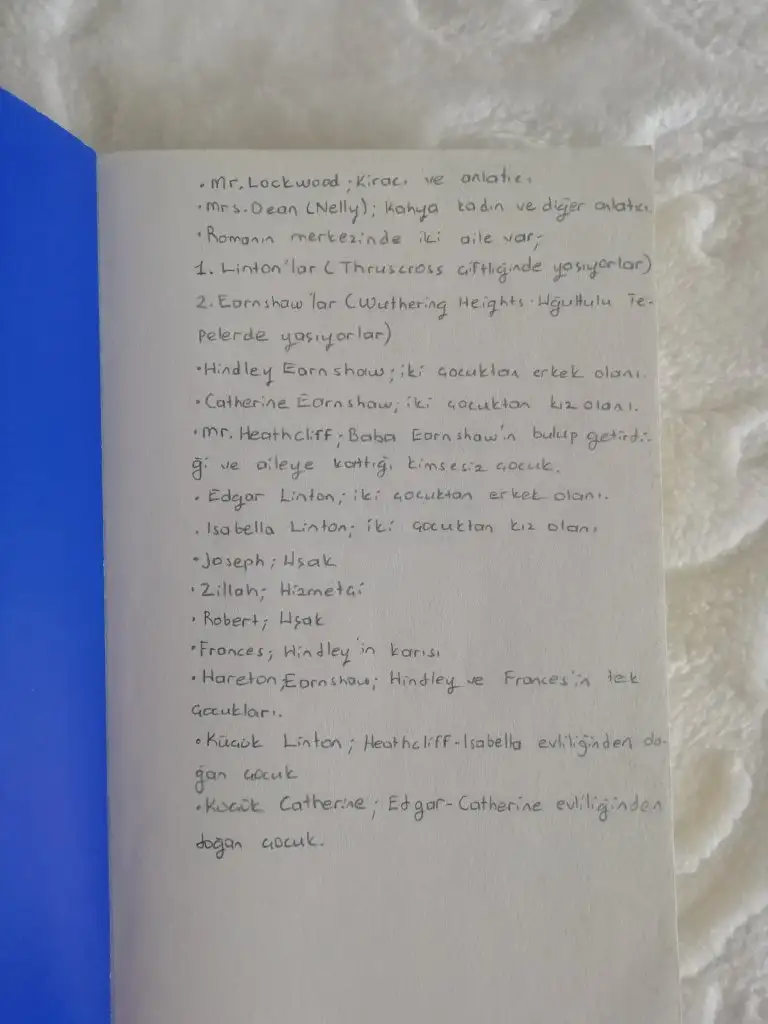 • Mr. Lockwood ; Kiracı ve anlatıcı
• Mrs. Dean (Nelly) ; Kahya kadın ve diğer anlatıcı
• Romanın merkezinde iki aile var;
1. Linton'lar ( Thruscross çiftliğinde yaşıyorlar)
2. Earnshaw'lar (Wuthering Heights - Uğultulu Te-
pelerde yaşıyorlar)
• Hindley Earnshaw ; iki çocuktan erkek olanı.
• Catherine Earnshaw; iki çocuktan kız olanı.
• Mr. Heathcliff ; Baba Earnshaw'ın bulup getirdi-
ği ve aileye kattığı kimsesiz çocuk.
• Edgar Linton ; iki çocuktan erkek olanı.
• Isabella Linton; iki çocuktan kız olanı
• Joseph ; Uşak
• Zillah; Hizmetçi
• Robert; Uşak
• Frances ; Hindley'in karısı
• Hareton Earnshaw; Hindley ve Frances'in tek
çocukları.
• Küçük Linton ; Heathcliff-Isabella evliliğinden do-
ğan çocuk
• Küçük Catherine ; Edgar-Catherine evliliğinden
doğan çocuk.